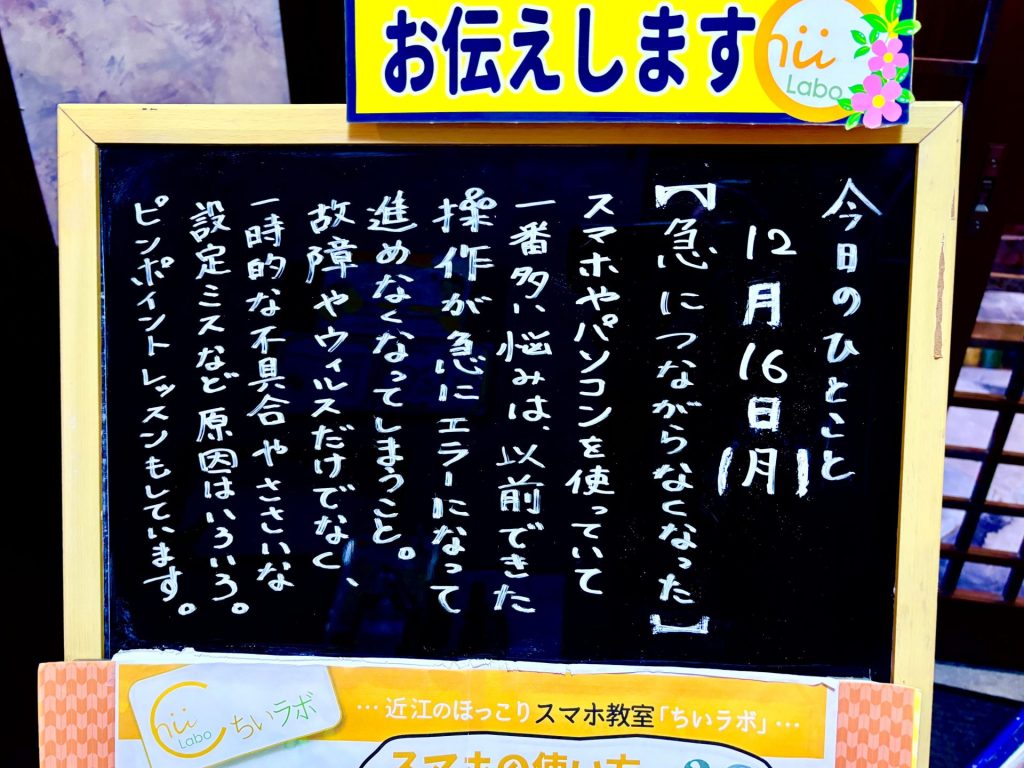 お伝えします
Chii
Labo
今日のひとこと
12月16日(月)
【急につながらなくなった】
スマホやパソコンを使っていて
一番多い悩みは、以前できた
操作が急にエラーになって
進めなくなってしまうこと。
故障やウィルスだけでなく、
一時的な不具合やささいな
設定ミスなど原因はいろいろ。
ピンポイントレッスンもしています。
Chii
Labo
ちいラボ
…近江のほっこりスマホ教室「ちいラボ」…
スマホの使い方